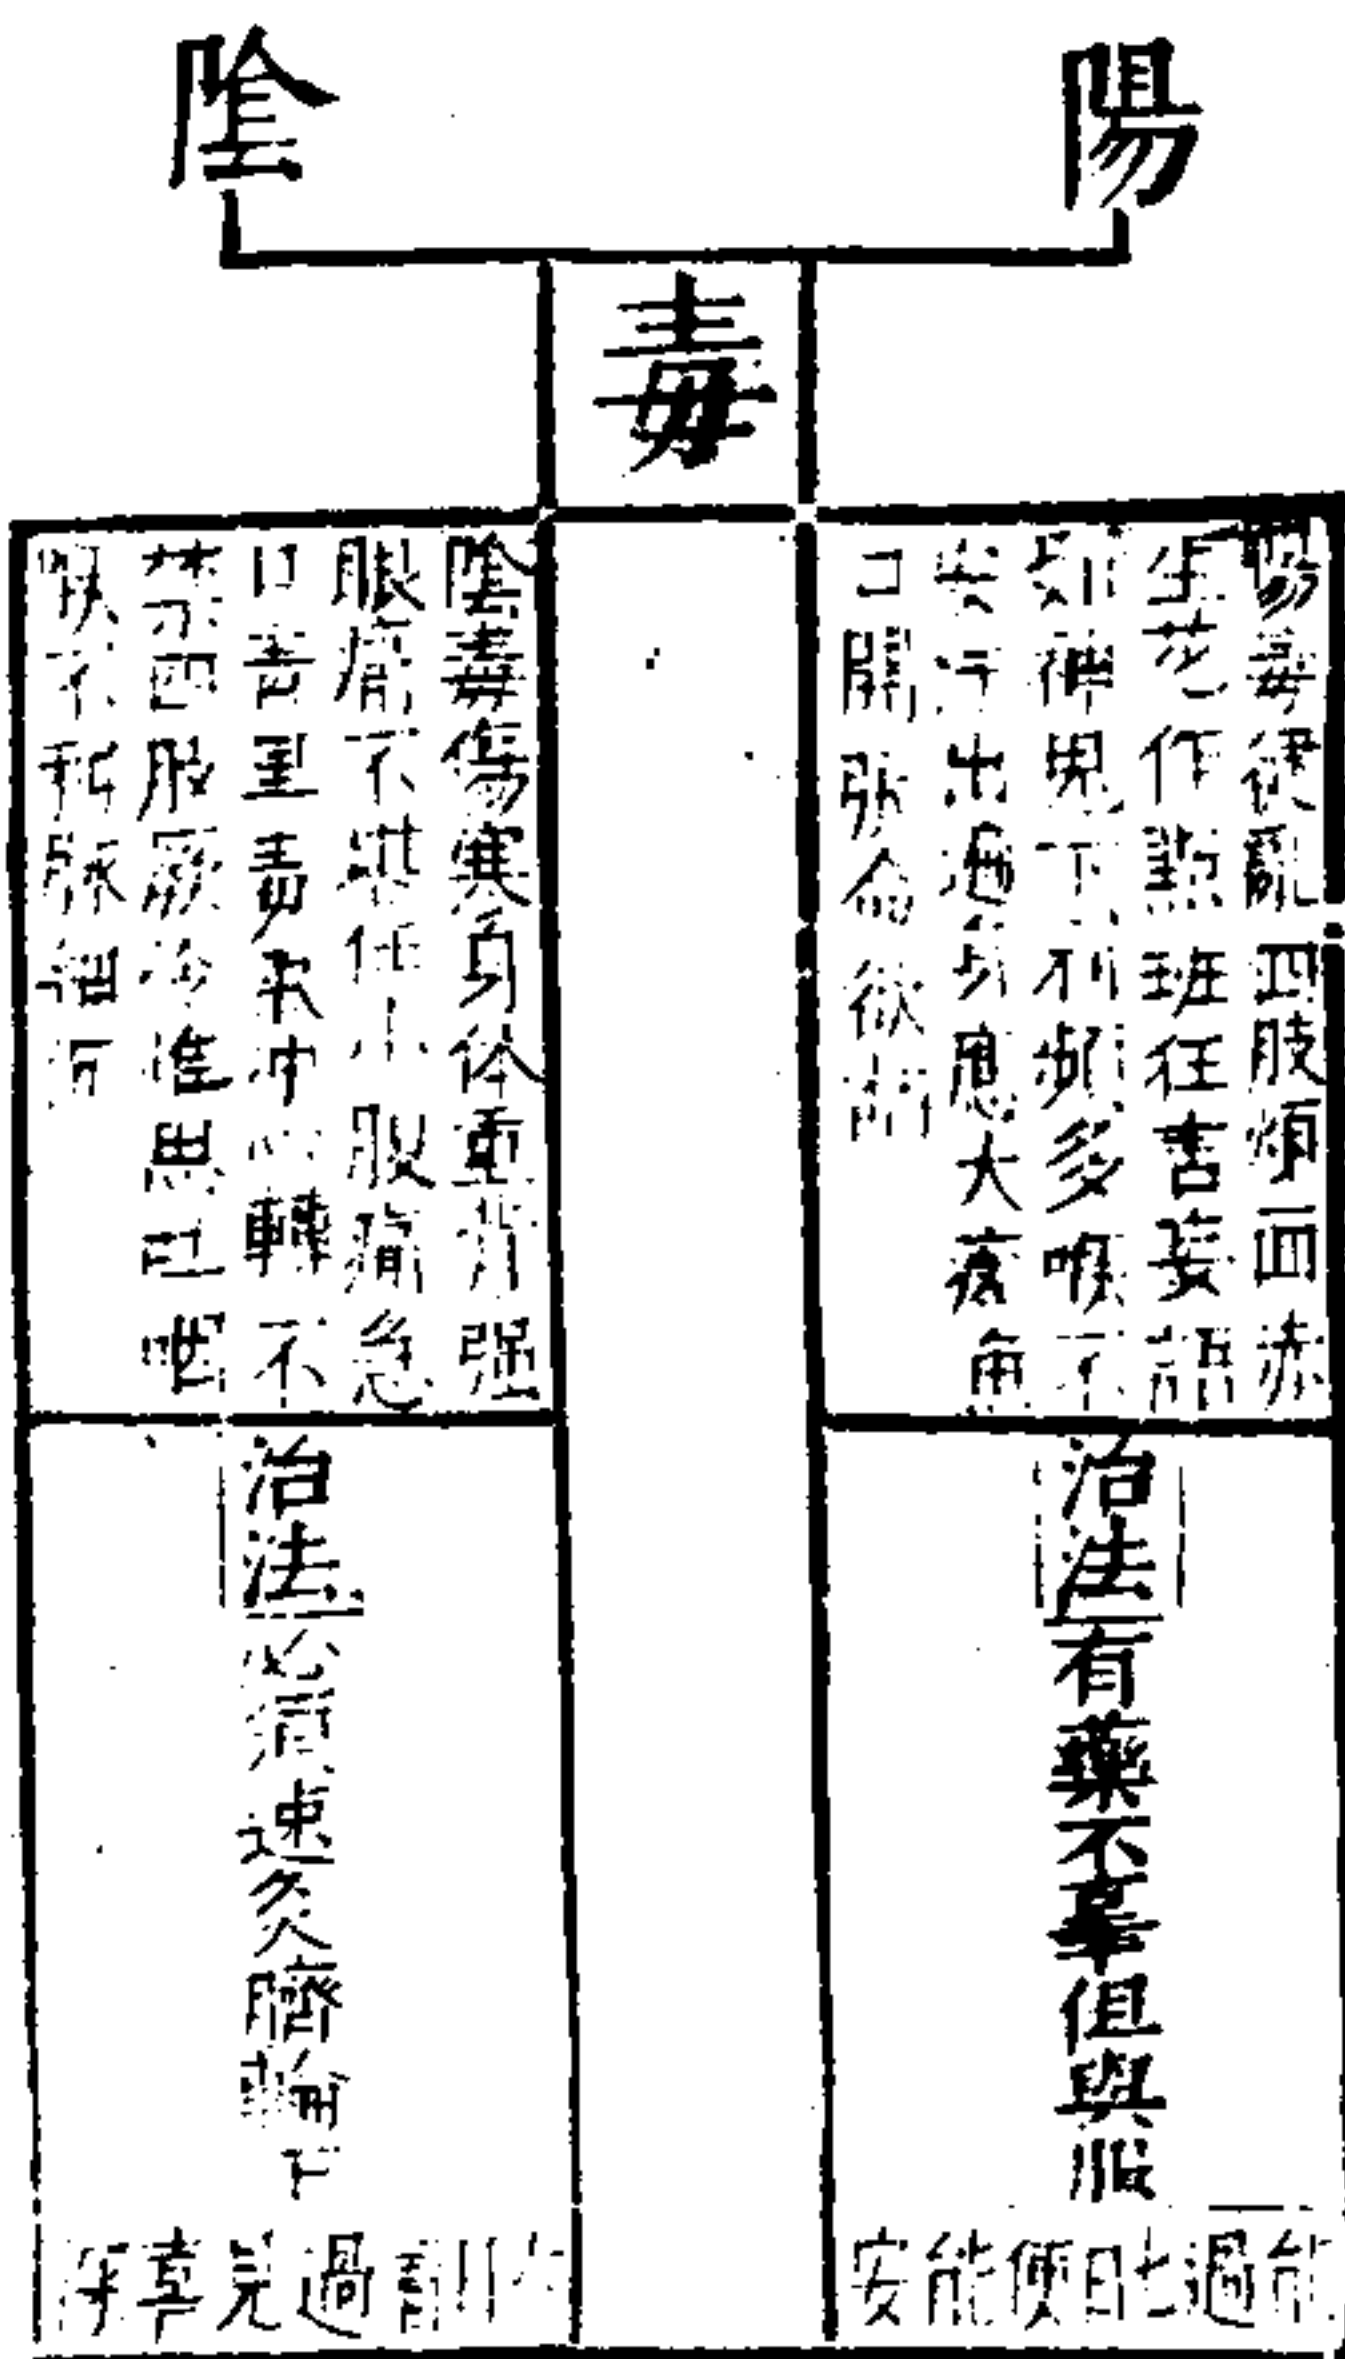 陽
陰
毒
陽毒健亂四肢煩面赤
生花作點班狂言妄語
如神鬼下利頻多喉不
安汗出遍身應大瘥魚
口開張命欲
治法
有藥不辜但與服
能過七日便能安
陰毒傷寒身体重背強
眼 不堪任小腹痛急
口青黑毒氣冲心轉不
禁四肢厥冷惟思 咽
喉不利脉細
治法
必須速灸臍輪下
過見喜